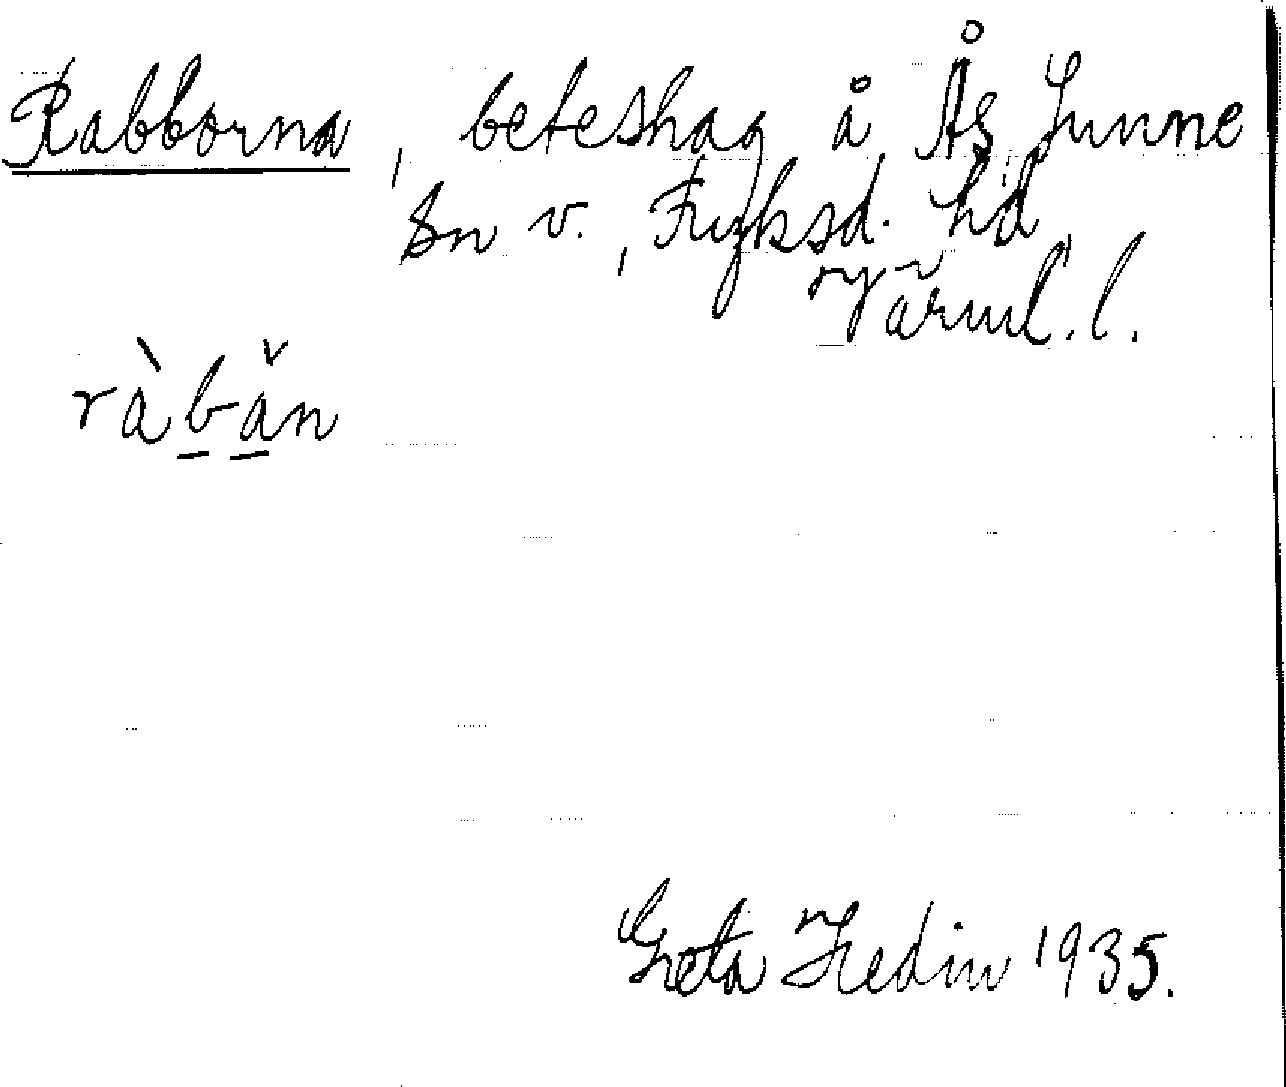 Rabborna, beteshag å Ås, Sunne
sn v., Fryksd. hd,
Värml. l.
ràbǎn
Greta Hedin 1935.